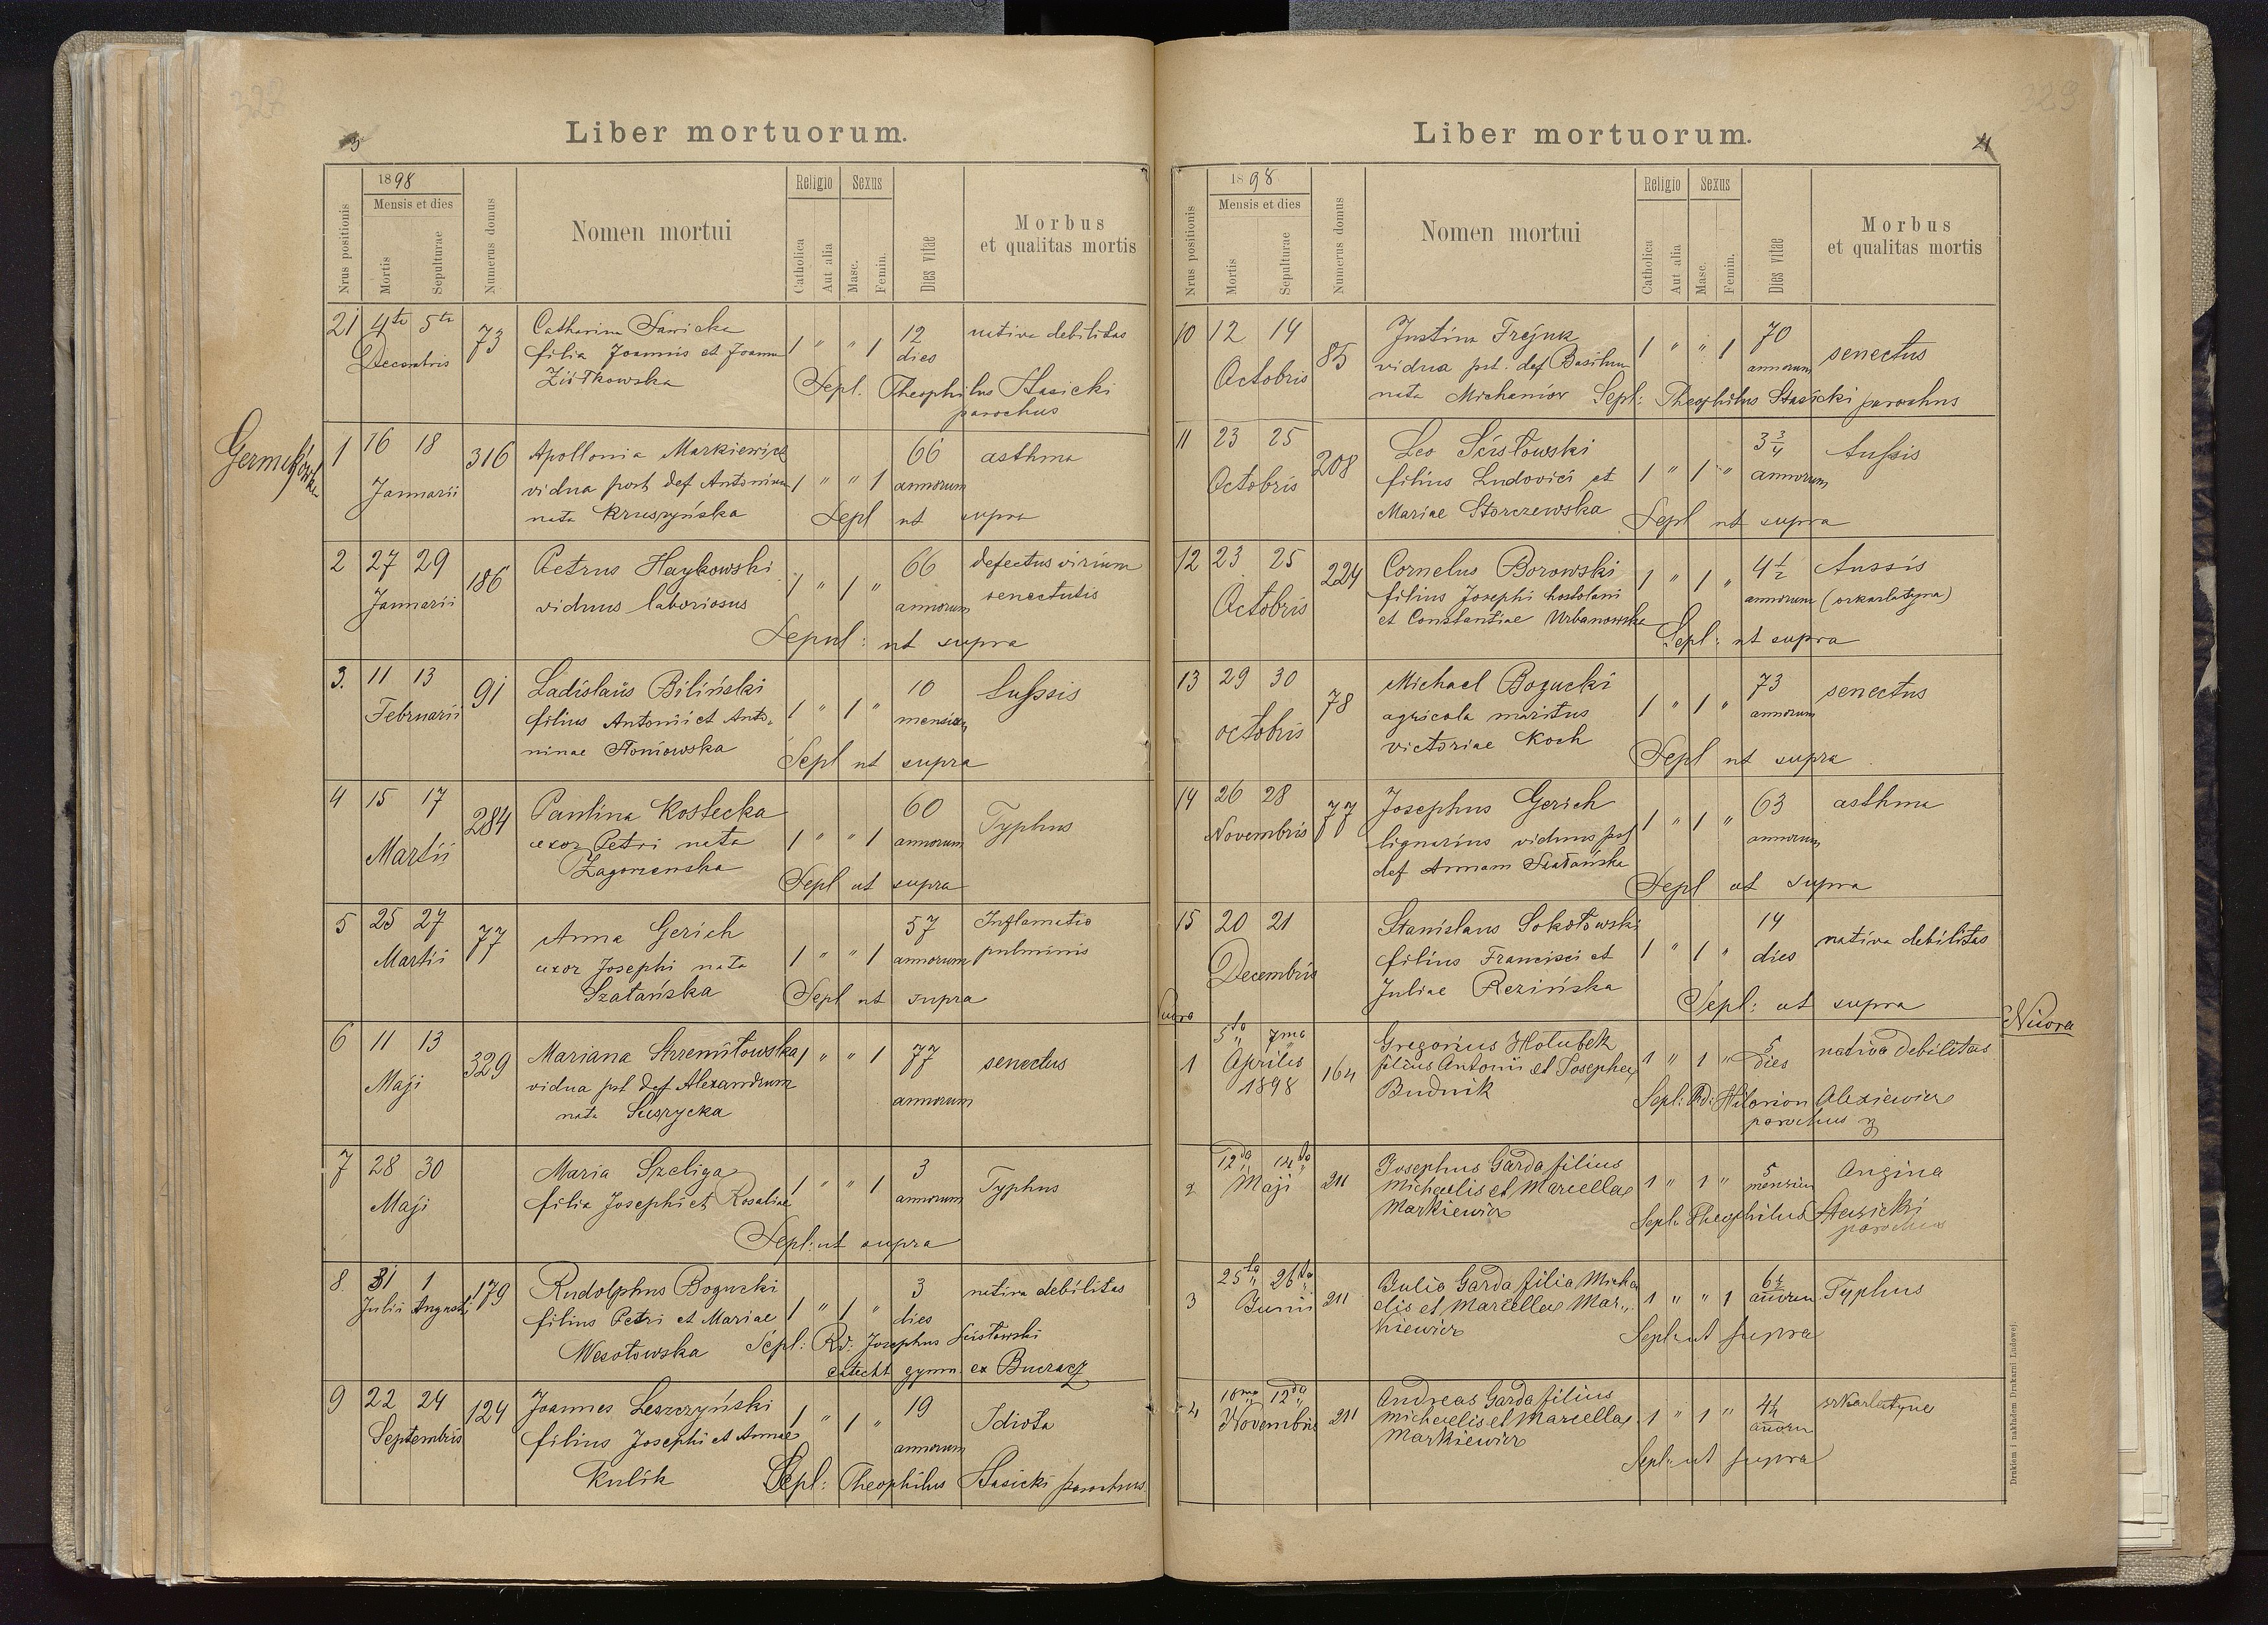 327
3
Liber mortuorum.
1898
Mensis et dies
Nrus positionis
Mortis
Sepulturae
Numerus domus
Nomen mortui
Religio
Sexus
Catholica
Aut alia
Masc.
Femin.
Dies vitae
Morbus
et qualitas mortis
21 4ta 5ta 73 Catharina Sawicka 1 " " 1 12 nativa debilitas
Decembris filia Joannis et Joanna dies
Ziółkowska Sepl. Theophilus Stasicki
parochus
Germakówka
1 16 18 316 Apollonia Markiewicz 66 asthma
Januarii vidua post def Antonium 1 " " 1 annorum
nata Kruszyńska Sepl ut supra
2 27 29 186 Petrus Haykowski 1 " 1 " 66 defectus virium
Januarii viduus laboriosus annorum senectutis
Sepul: ut supra
3. 11 13 91 Ladislaus Biliński 10 tussis
Februarii filius Antonii et Anto- 1 " 1 " mensium
ninae Słoniowska Sepl ut supra
4 15 17 284 Paulina Kostecka 60 Typhus
Martii uxor Petri nata 1 " " 1 annorum
Sepl ut supra
5 25 27 77 Anna Gerich 57 Inflamatio
Martii uxor Josephi nata 1 " " 1 annorum pulminis
Szatańska Sepl ut supra
6 11 13 329 Mariana Strzemiłowska 1 " " 1 77 senectus
Maji vidua pst def Alexandrum annorum
nata
7 28 30 Maria Szeliga 1 " " 1 3 Typhus
Maji filia Josephi et Rosaliae annorum
Sepl: ut supra
8 31 1 179 Rudolphus Bogucki 3 nativa debilitas
Julii Augusti filius Petri et Mariae 1 " 1 " dies
Wesołowska Sepl: Rd: Josephus Ścisłowski
catecht gymn. ex Buczacz
9 22 24 124 Joannes Leszczyński 1 " 1 " 19 Idiota
Septembris filius Josephi et Annae annorum
Kulik Sepl: Theophilus Stasicki parochus
329
21
Liber mortuorum.
1898
Mensis et dies
Nrus positionis
Mortis
Sepulturae
Numerus domus
Nomen mortui
Religio
Sexus
Catholica
Aut alia
Masc.
Femin.
Dies vitae
Morbus
et qualitas mortis
10 12 14 85 Justina Trejuk 1 " " 1 70 senectus
Octobris vidua pst. def Basilium annorum
nata Michaniów Sepl: Theophilus Stasicki parochus
11 23 25 208 Leo Ścisłowski 3 3/4 tussis
Octobris filius Ludovici et 1 " 1 " annorum
Mariae Storczewska Sepl ut supra
12 23 25 224 Cornelus Borowski 1 " 1 " 4 1/2 tussis
Octobris filius Josephi annorum (szkarlatyna)
et Constantiae Urbanowska Sepl: ut supra
13 29 30 78 Michael Bogucki 73 senectus
octobris agricola maritus 1 " 1 " annorum
victoriae Koch Sepl ut supra
14 26 28 77 Josephus Gerich 1 " 1 " 63 asthma
Novembris lignarius viduus pst annorum
def Annam Szatańska Sepl ut supra
15 20 21 Stanislaus Sokołowski 14 nativa debilitas
Decembris filius Francisci et 1 " 1 " dies
Juliae Rezińska Sepl: ut supra
Niwra
1 5ta 7ma 164 Gregorius Hołubek 1 " 1 " 5 nativa debilitas
Aprilis filius Antonii et Josephae dies
1898 Budnik Sepl: Rd: Hilarion Alexiewicz
parochus
2 12da 14da 211 Josephus Garda filius 1 " 1 " 5 Angina
Maji Michaelis et Marcellae mensium
Markiewicz Sepl: Theophilus Stasicki
parochus
3 25ta 26ta 211 Julia Garda filia Micha 6 1/2 Typhus
Junii elis et Marcellae Mar- 1 " " 1 annorum
kiewicz Sepl: ut supra
4 10ma 12da 211 Andreas Garda filius 4 1/2 szkarlatyna
Novembris Michaelis et Marcellae 1 " 1 " annorum
Markiewicz
Sepl: ut supra
Drukiem i nakładem Drukarni Ludowej.